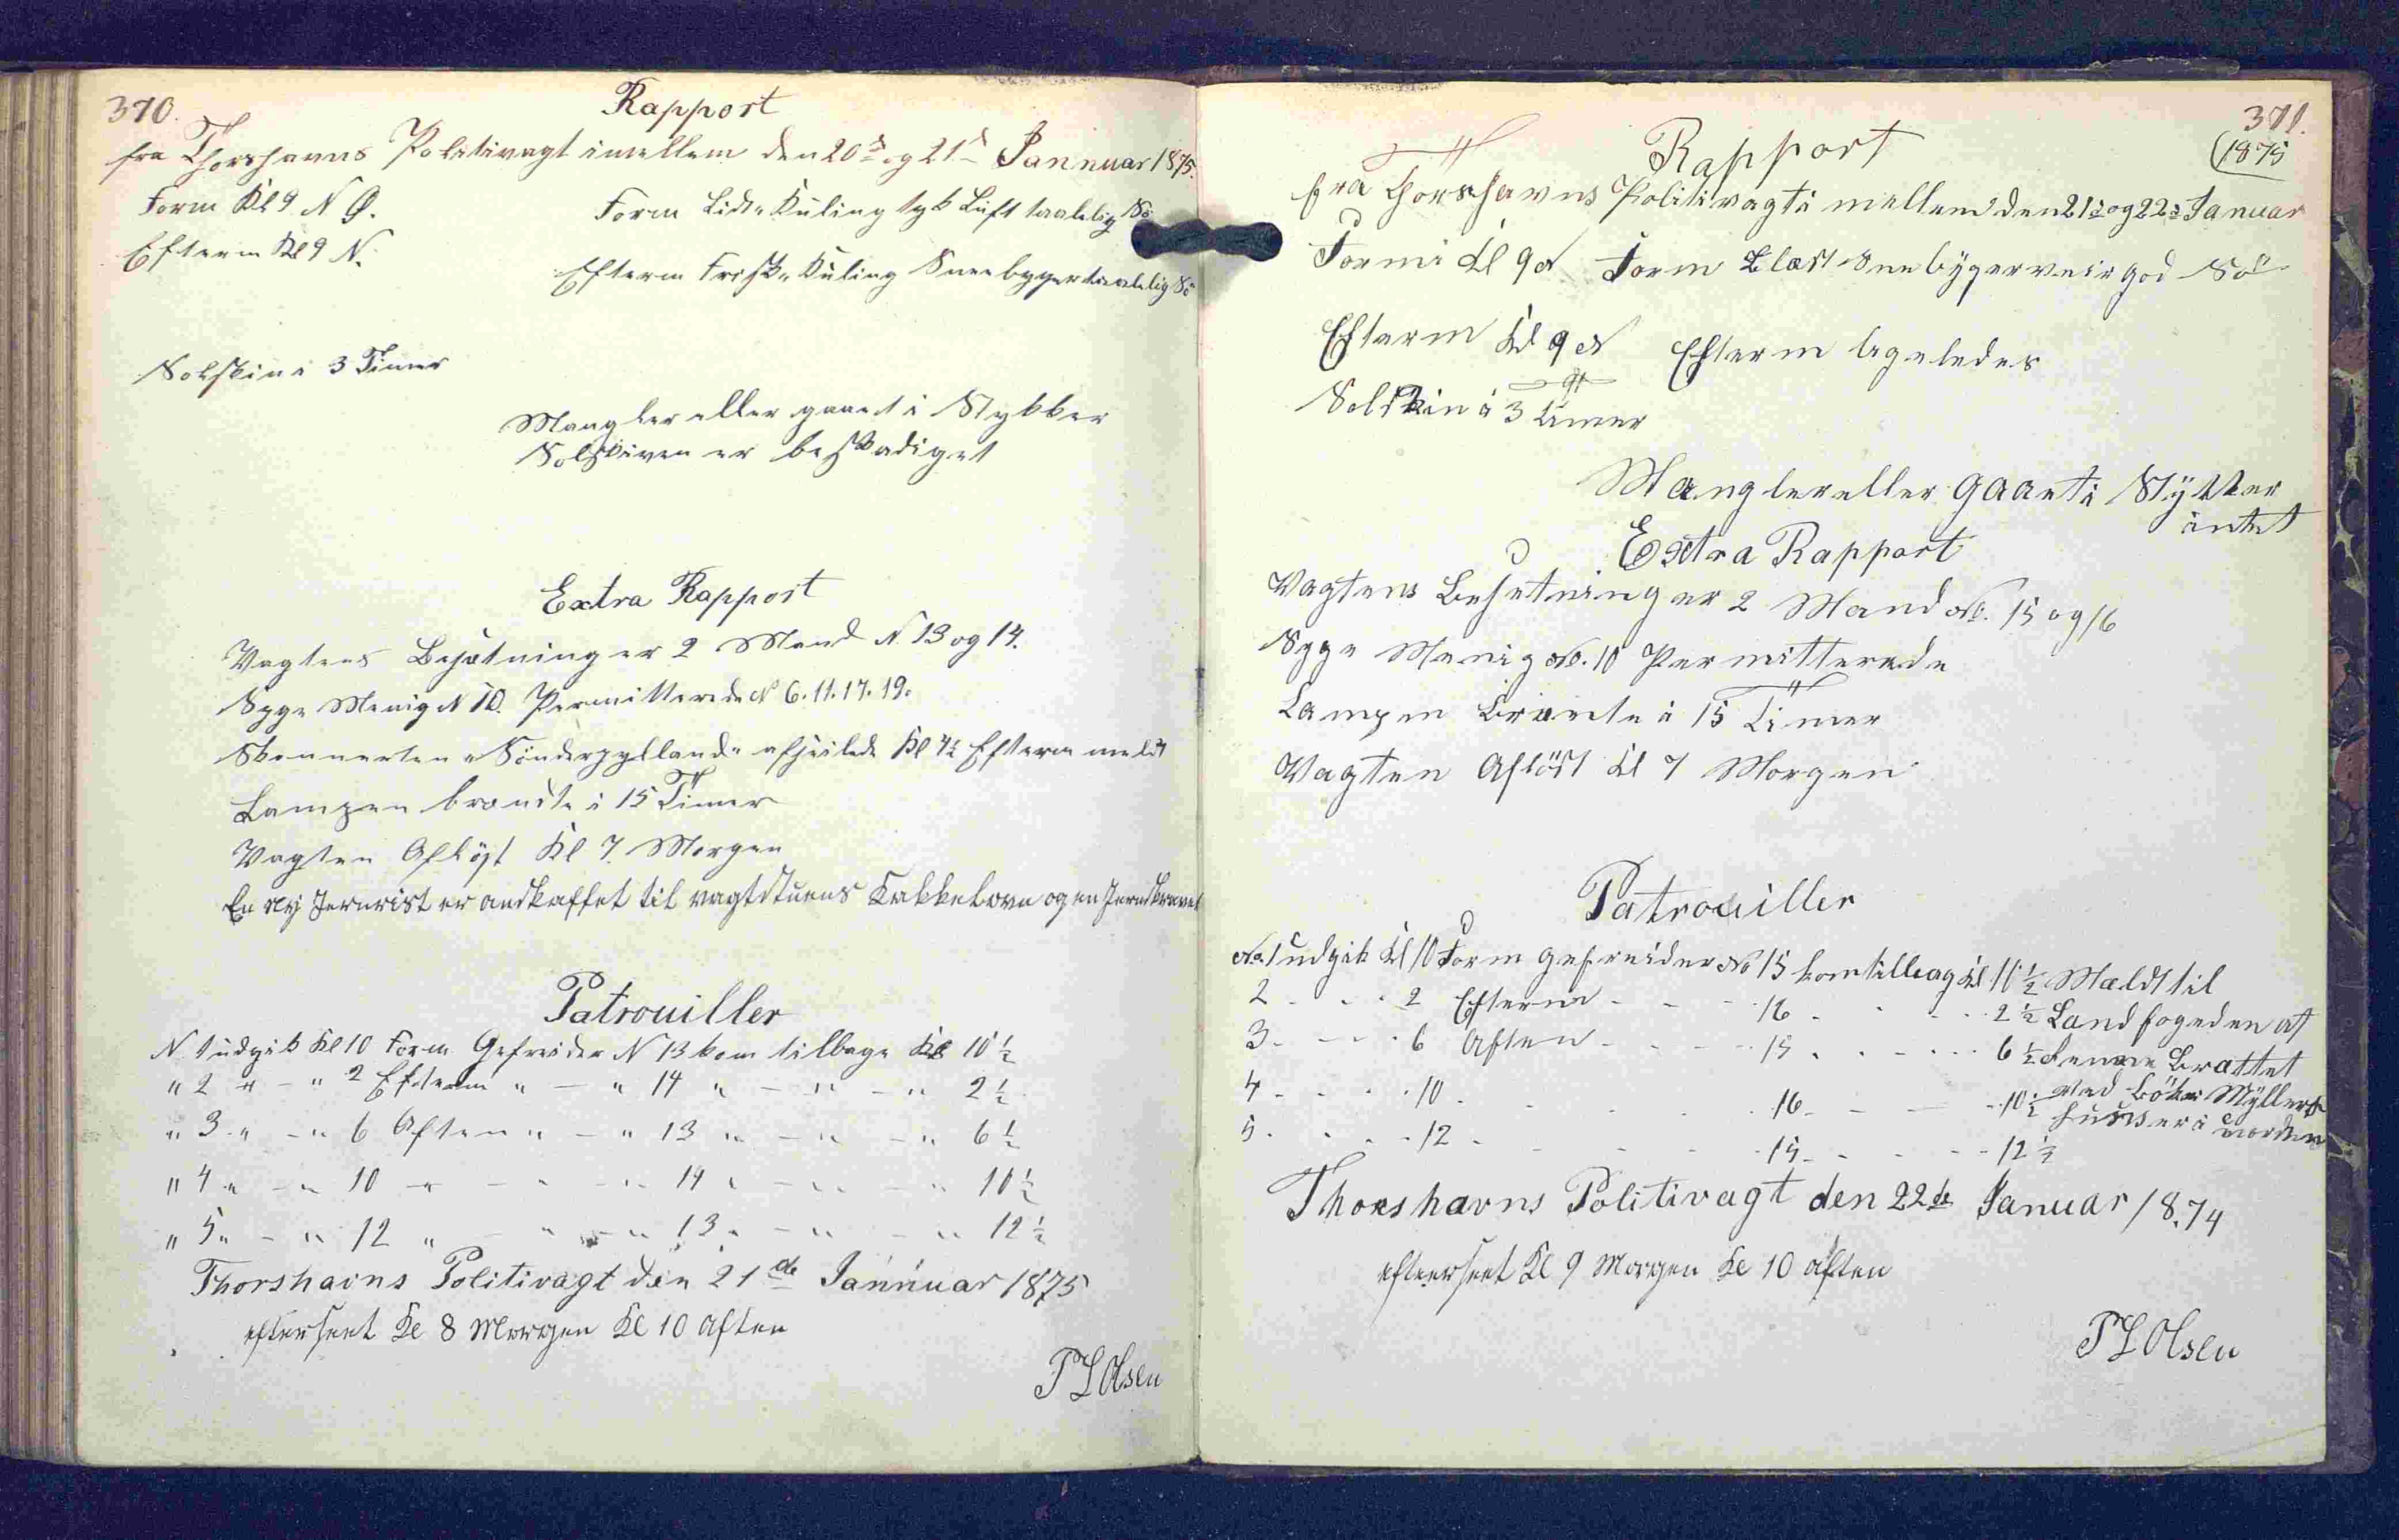 370.
Rapport
fra Thorshavns Politivagt imellem den 20de og 21de Jannuar 1875.
Form Kl 9 N Ø. Form Lidt Kuling tyk Luft taalelig Sö
Efterm Kl 9 N. Efterm Frisk Kuling Sneebyger taalelig Sö
Solskin i 3 Timer
Mangler eller gaaet i Stykker
Solskiven er beskadiget
Extra Rapport
Vagtens Besætning er 2 Mand N 13 og 14.
Syge Menig N 10. Permitterede N 6. 11. 17. 19.
Skonnerten "Sönderjylland" afseilede Kl 4½ Efterm meldt
Lampen brændte i 15 Timer
Vagten Aflöst Kl 7. Morgen
En nÿ Jernrist er andskaffet til vagtstuens Kakkelovn og en
Patrouiller
N 1 udgik Kl 10 Form Gefreider N 13 kom tilbage Kl 10½
" 2 " - " 2 Efterm " - " 14 " - " - " 2½
" 3 " - " 6 Aften " - " 13 " - " - " 6½
" 4 " - " 10 " - " - " 14 " - " - " 10½
" 5 " - " 12 " - " - " 13 " - " - " 12½
Thorshavns Politivagt den 21de Jannuar 1875
efterseet Kl 8 Morgen Kl 10 Aften
P L Olsen
371.
(1875
Rapport
fra Thorshavns Politivagt i mellem den 21de og 22de Januar
Formi Kl 9 N Form Blæst Snebÿgerveir god Sö
Efterm Kl 9 N Efterm ligeledes
Solskin i 3 Timer
Mangler eller gaaet i Stÿkker
intet
Extra Rapport
Vagtens Besetning er 2 Mand No. 15 og 16
Syge Menig No. 10 Permitterede
Lampen Brænte i 15 Timer
Vagten Aflöst Kl 7 Morgen
Patrouiller
No. 1 udgik Kl 10 Form gefreider No 15 kom tilbag Kl 10½ Mældt til
2 - - - 2 Efterm - - - 16 - - - 2½ Landfogeden at
3 - - - 6 Aften - - - 15 - - - 6½ Brattet
4 - - - 10 - - - 16 - - - 10½ ved Mÿllers
5 - - - 12 - - - 15 - - - 12½ huuser i
Thorshavns Politivagt den 22de Januar 18.74
efterseet Kl 9 Morgen Kl 10 aften
P L Olsen